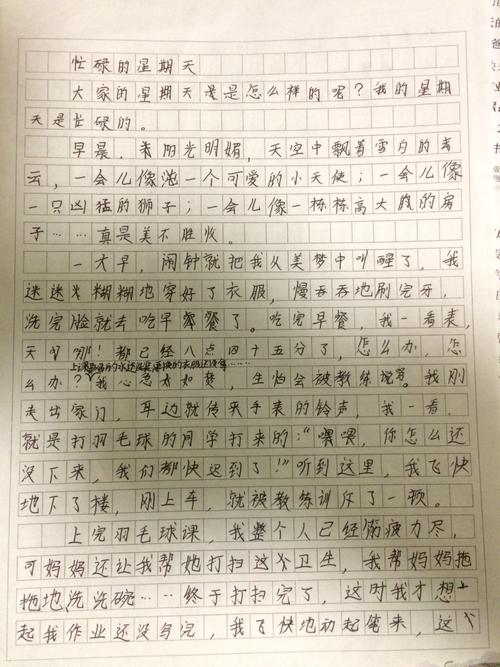 忙碌的星期天
大家的星期天是是怎么样的呢？我的星期
天是忙碌的。
早晨，阳光明媚，天空中飘着雪白的
云，一会儿像一个可爱的小天使；一会儿像
一只凶猛的狮子；一会儿像一栋栋高大的房
子……真是美不胜收。
一大早，闹钟就把我从美梦中叫醒了，我
迷迷火糊糊地穿好了衣服，慢吞吞地刷完牙，
洗完脸就去吃早餐了。吃完早餐，我一看表，
天哪！都已经八点四十五分了，怎么办，怎
么办？我心急如焚，生怕会被教练。我刚
走出家门，耳边就传来手表的铃声，我一看，
就是打羽毛球的同学打来的：“喂喂，你怎么还
没下来，我们都快迟到了！”听到这里，我飞快
地下了楼，刚上车，就被教练训斥了一顿。
上完羽毛球课，我整个人已经筋疲力尽，
可妈妈还让我帮她打扫这个卫生，我帮妈妈拖
拖地，洗洗碗……终于打扫完了，这时我才想
起我作业还没写完，我飞快地动起笔来，这个